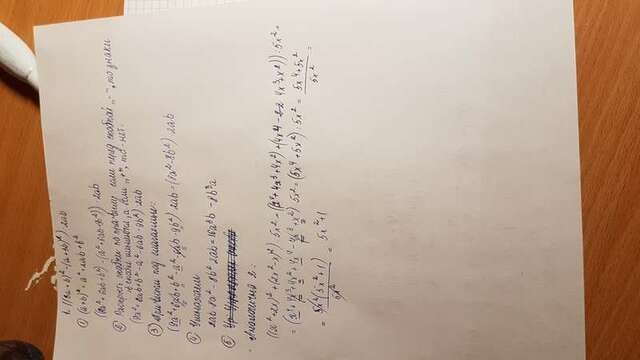 1. ((3a+b)²-(a+3b)²)·2ab
① (a+b)²=a²+2ab+b²
(9a²+6ab+b²)-(a²+6ab+9b²))·2ab
② Раскроем скобки по правилу: если перед скобкой „-“, то знаки
в скобке меняются, а если „+“, то нет.
(9a²+6ab+b²-a²-6ab-9b²) 2ab
③ Приведём под. слагаемые:
(9a²+6ab+b²-a²-6ab-9b²) 2ab=(8a²-8b²) 2ab
④ Умножаем
2ab·8a²-8b²·2ab=16a³b-8b³a
⑤
Аналогично 2:
((x²+2x)²+(2x²-x)²) 5x²=((x⁴+4x³+4x²)+(4x⁴-4x³+x²))·5x²=
=(x⁴+4x³+4x²+4x⁴-4x³+x²) 5x²=(5x⁴+5x²):5x²=(5x⁴+5x²)/5x²=
=5x²(5x²+1)/5x² = 5x²+1